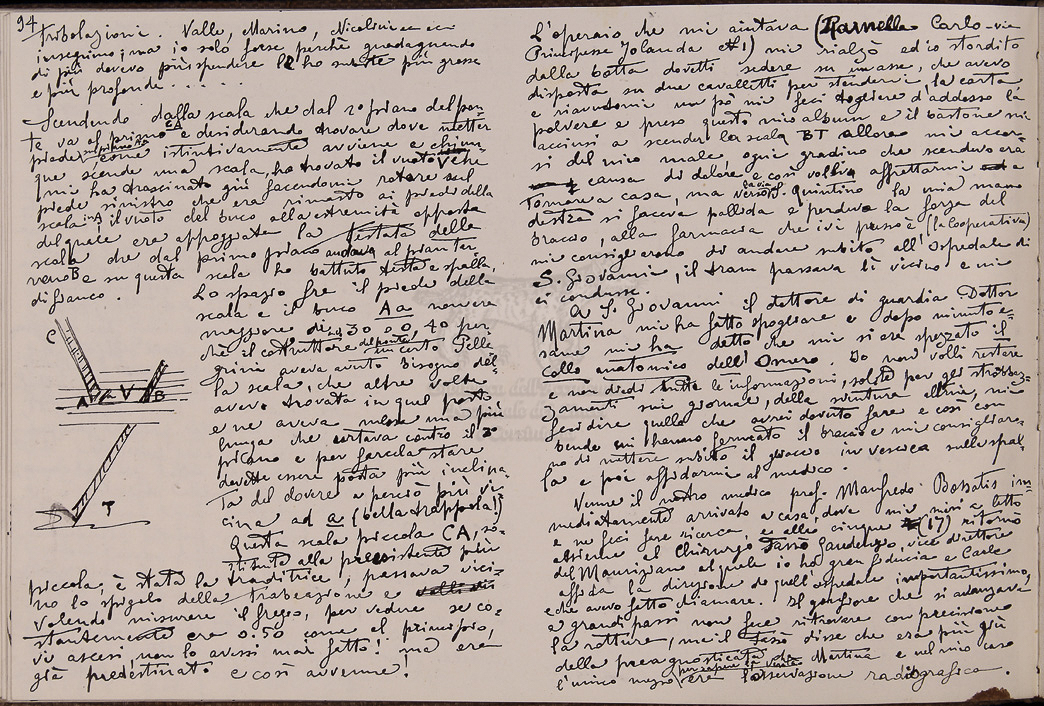 94
tribolazioni. Valle, Marino, Nicolini ecc
insegnino; ma io solo forse perchè guadagnando
di più dovevo più spendere le ho subite più grosse
e più profonde . . . .
Scendendo dalla scala che dal 2° piano del pon-
te va al primo CA e desiderando trovare dove metter
piede come istintivamente avviene e
que scende una scala, ho trovato il vuoto V che
mi ha trascinato giù facendomi rotare sul
piede sinistro che era rimasto ai piedi della
scala in A il vuoto del buco alla estremità opposta
del quale era appoggiata la testata della
scala che dal primo piano andava al pian ter
reno B e su questa scala ho battuto testa e spalla,
di fianco.
Lo spazio fra il piede della
scala e il buco Aa non era
maggiore di 0,30 o 0,40 per
chè il costruttore del ponte un certo Pelle
grini aveva avuto bisogno del-
la scala, che altre volte
avevo trovata in quel posto
e ne aveva messa una più
lunga che urtava contro il 2°
piano e per farcela stare
dovette essere posta più inclina
ta del dovere e perciò più vi
cina ad a (bella trappola!)
Questa scala piccola CA, so-
stituita alla preesistente più
piccola, è stata la traditrice, passavo vici-
no lo spigolo della trabeazione e
volendo misurare il fregio, per vedere se co-
stantemente era 0.50 come il primo foro,
vi ascesi, non lo avessi mai fatto! ma era
già predestinato e così avvenne!
C
A a V B
T
L'operaio che mi aiutava (Ramella Carlo - via
Principessa Jolanda N° 1) mi rialzò ed io stordito
dalla botta dovetti sedere su un asse, che avevo
disposta su due cavalletti per stendervi la carta
e riavutomi un pò mi feci togliere d'addosso la
polvere e preso questo mio album e il bastone mi
accinsi a scendere la scala BT allora mi accor
si del mio male, ogni gradino che scendevo era
causa di dolore e così volli affrettarmi a
tornare a casa, ma verso la via S. Quintino la mia mano
destra si faceva pallida e perdeva la forza del
braccio, alla farmacia che ivi presso è (la Cooperativa)
mi consigliarono di andare subito all'Ospedale di
S. Giovanni, il tram passava lì vicino e mi
ci condusse.
A S. Giovanni il dottore di guardia Dottor
Martina mi ha fatto spogliare e dopo minuto e-
same mi ha detto che mi si era spezzato il
collo anatomico dell'Omero. Io non volli restare
e non diedi tutte le informazioni, solite per gli strombaz-
zamenti sui giornali, della sventura altrui, mi
feci dire quello che avrei dovuto fare e così con
bende mi hanno fermato il braccio e mi consigliaro-
no di mettere subito il ghiaccio in vescica sulla spal-
la e poi affidarmi al medico.
Venne il nostro medico prof. Manfredo Bossatis im-
mediatamente arrivato a casa, dove mi misi a letto
e ne feci fare ricerca, e alle cinque (17) ritornò
assieme al Chirurgo Tassò Gaudenzio, vice direttore
del Mauriziano al quale io ho gran fiducia e Carle
affida la direzione di quell'ospedale importantissimo,
e che avevo fatto chiamare. Il gonfiore che si avanzava
a grandi passi non fece ritrovare con precisione
la rottura, ma il Tassò disse che era più giù
della preagnosticata da Martina e nel mio caso
l'unico mezzo per sapere la verità era l'osservazione radiografica.